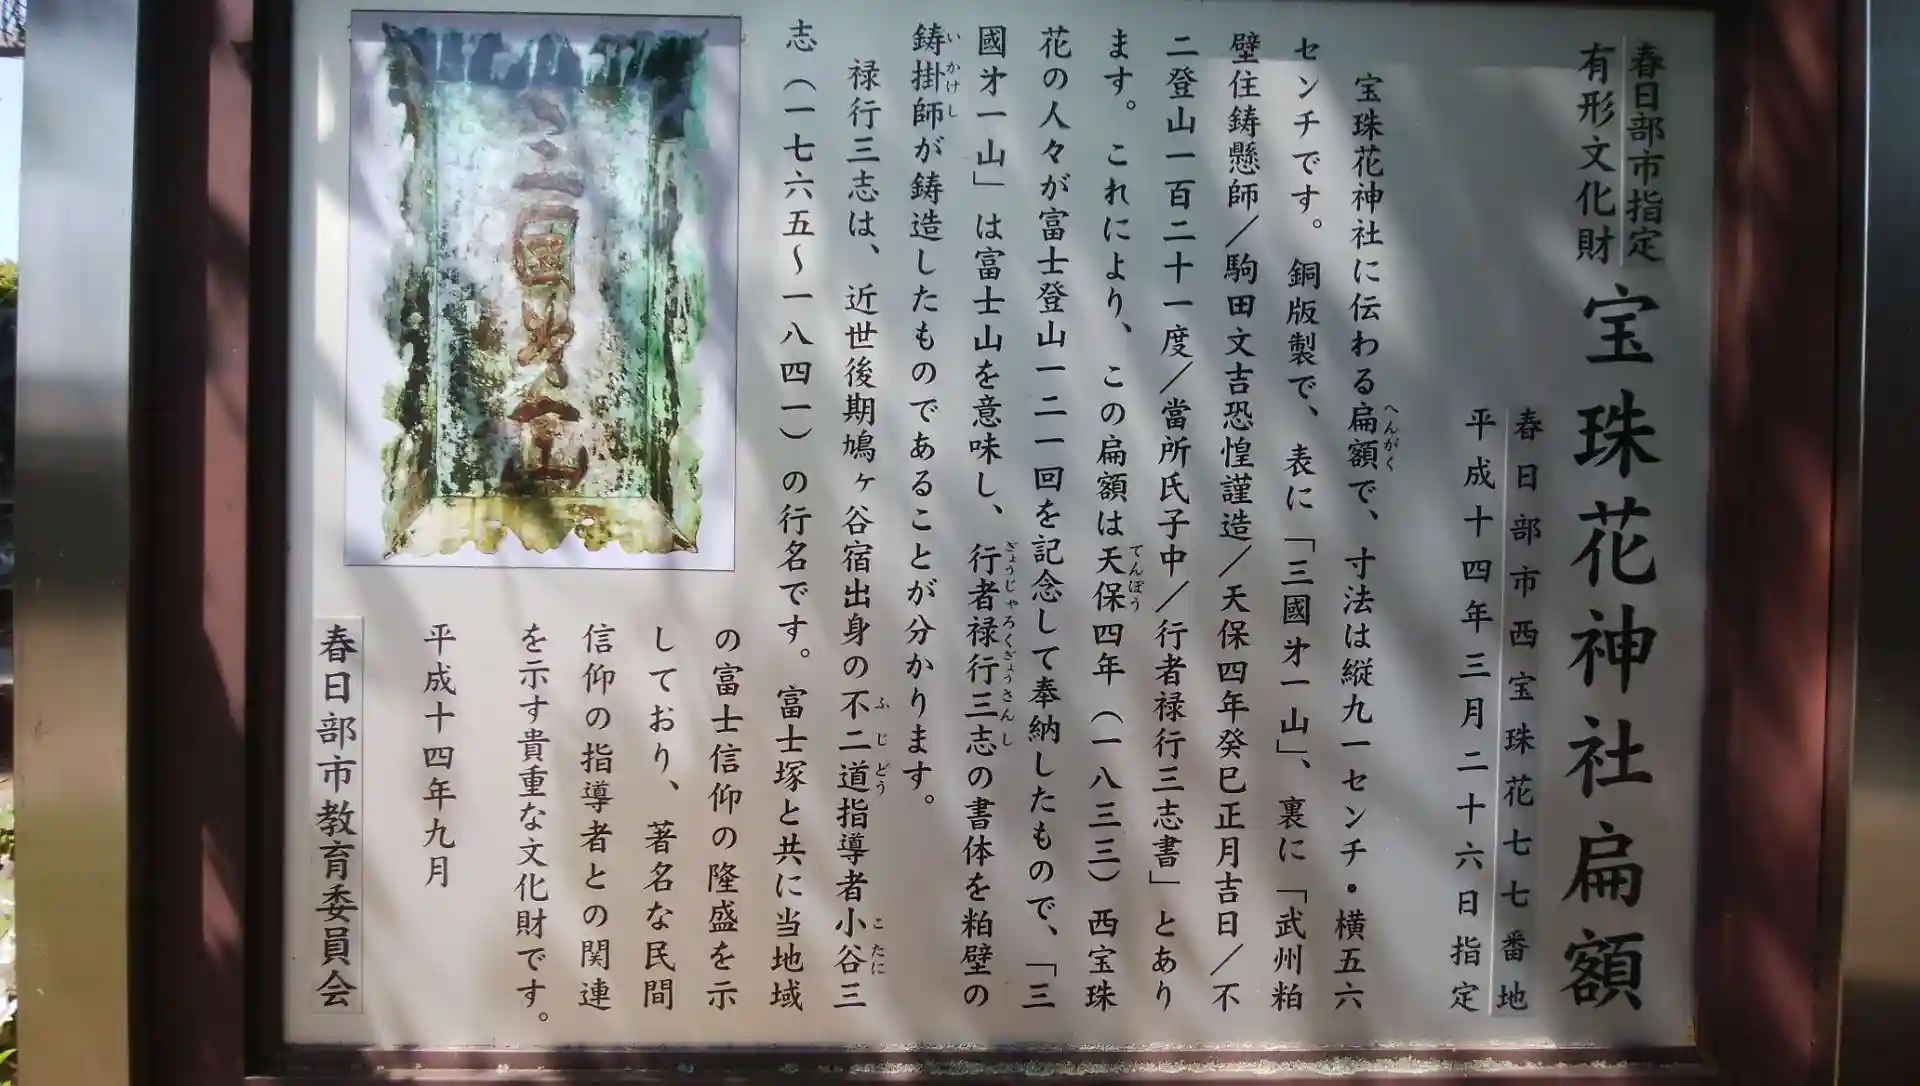 春日部市指定
有形文化財
宝珠花神社扁額
春日部市西宝珠花七七七番地
平成十四年三月二十六日指定
宝珠花神社に伝わる扁額で、寸法は縦九一センチ・横五六
センチです。銅版製で、表に「三國㐧一山」、裏に「武州粕
壁住鋳懸師／駒田文吉恐惶謹造／天保四年癸巳正月吉日／不
二登山一百二十一度／當所氏子中／行者禄行三志書」とあり
ます。これにより、この扁額は天保四年（一八三三）西宝珠
花の人々が富士登山一二一回を記念して奉納したもので、「三
國㐧一山」は富士山を意味し、行者禄行三志の書体を粕壁の
鋳掛師が鋳造したものであることが分かります。
禄行三志は、近世後期鳩ヶ谷宿出身の不二道指導者小谷三
志（一七六五〜一八四一）の行名です。富士塚と共に当地域
の富士信仰の隆盛を示
しており、著名な民間
信仰の指導者との関連
を示す貴重な文化財です。
平成十四年九月
春日部市教育委員会
へんがく
てんぽう
ぎょうじゃろくぎょうさんし
いかけし
ふじどう
こたに
三國㐧一山